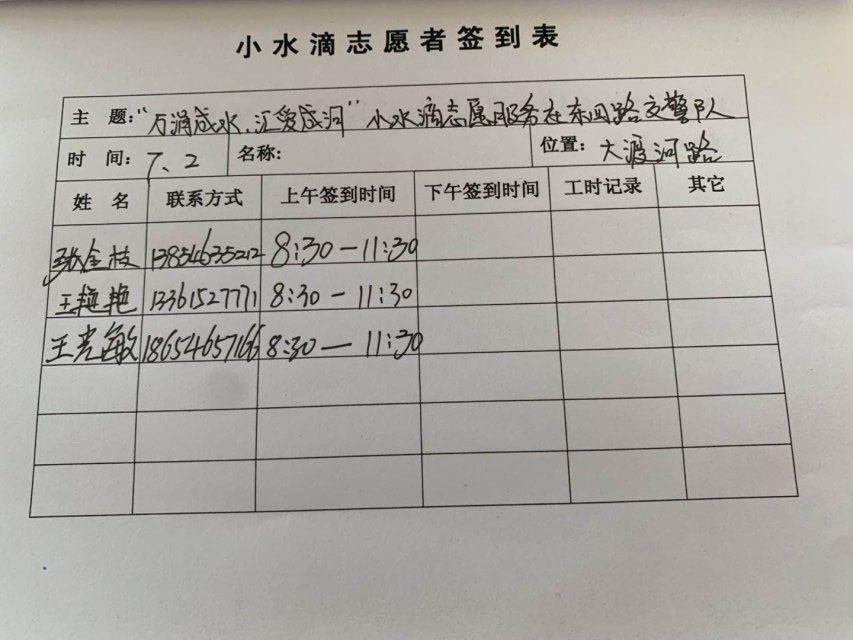 小水滴志愿者签到表
主 题："万涓成水、汇爱成河"小水滴志愿服务在东四路交警队
时 间：7、2 名称： 位置：大渡河路
姓 名 联系方式 上午签到时间 下午签到时间 工时记录 其它
张金枝 13854635212 8:30－11:30
王艳艳 13361527771 8:30－11:30
王光敏 18654657166 8:30－11:30